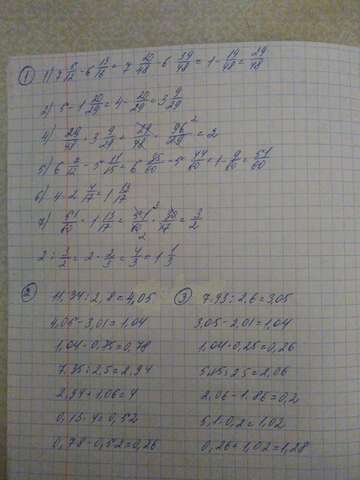 ① 1) 7 5/12 - 6 13/16 = 7 20/48 - 6 39/48 = 1 - 19/48 = 29/48
2) 5 - 1 20/29 = 4 - 20/29 = 3 9/29
4) 29/48 · 3 9/29 = 29/48 · 96/29 ² = 2
5) 6 7/12 - 5 11/15 = 6 35/60 - 5 44/60 = 1 - 9/60 = 51/60
6) 4 - 2 4/17 = 1 13/17
7) 51/60 · 1 13/17 = 51/60 · 30/17 = 3/2
2 : 3/2 = 2 · 2/3 = 4/3 = 1 1/3
② 11,34 : 2,8 = 4,05
4,05 - 3,01 = 1,04
1,04 · 0,75 = 0,78
7,35 : 2,5 = 2,94
2,94 + 1,06 = 4
0,13 · 4 = 0,52
0,78 - 0,52 = 0,26
③ 7,93 : 2,6 = 3,05
3,05 - 2,01 = 1,04
1,04 · 0,25 = 0,26
5,15 : 2,5 = 2,06
2,06 - 1,86 = 0,2
5,1 · 0,2 = 1,02
0,26 + 1,02 = 1,28